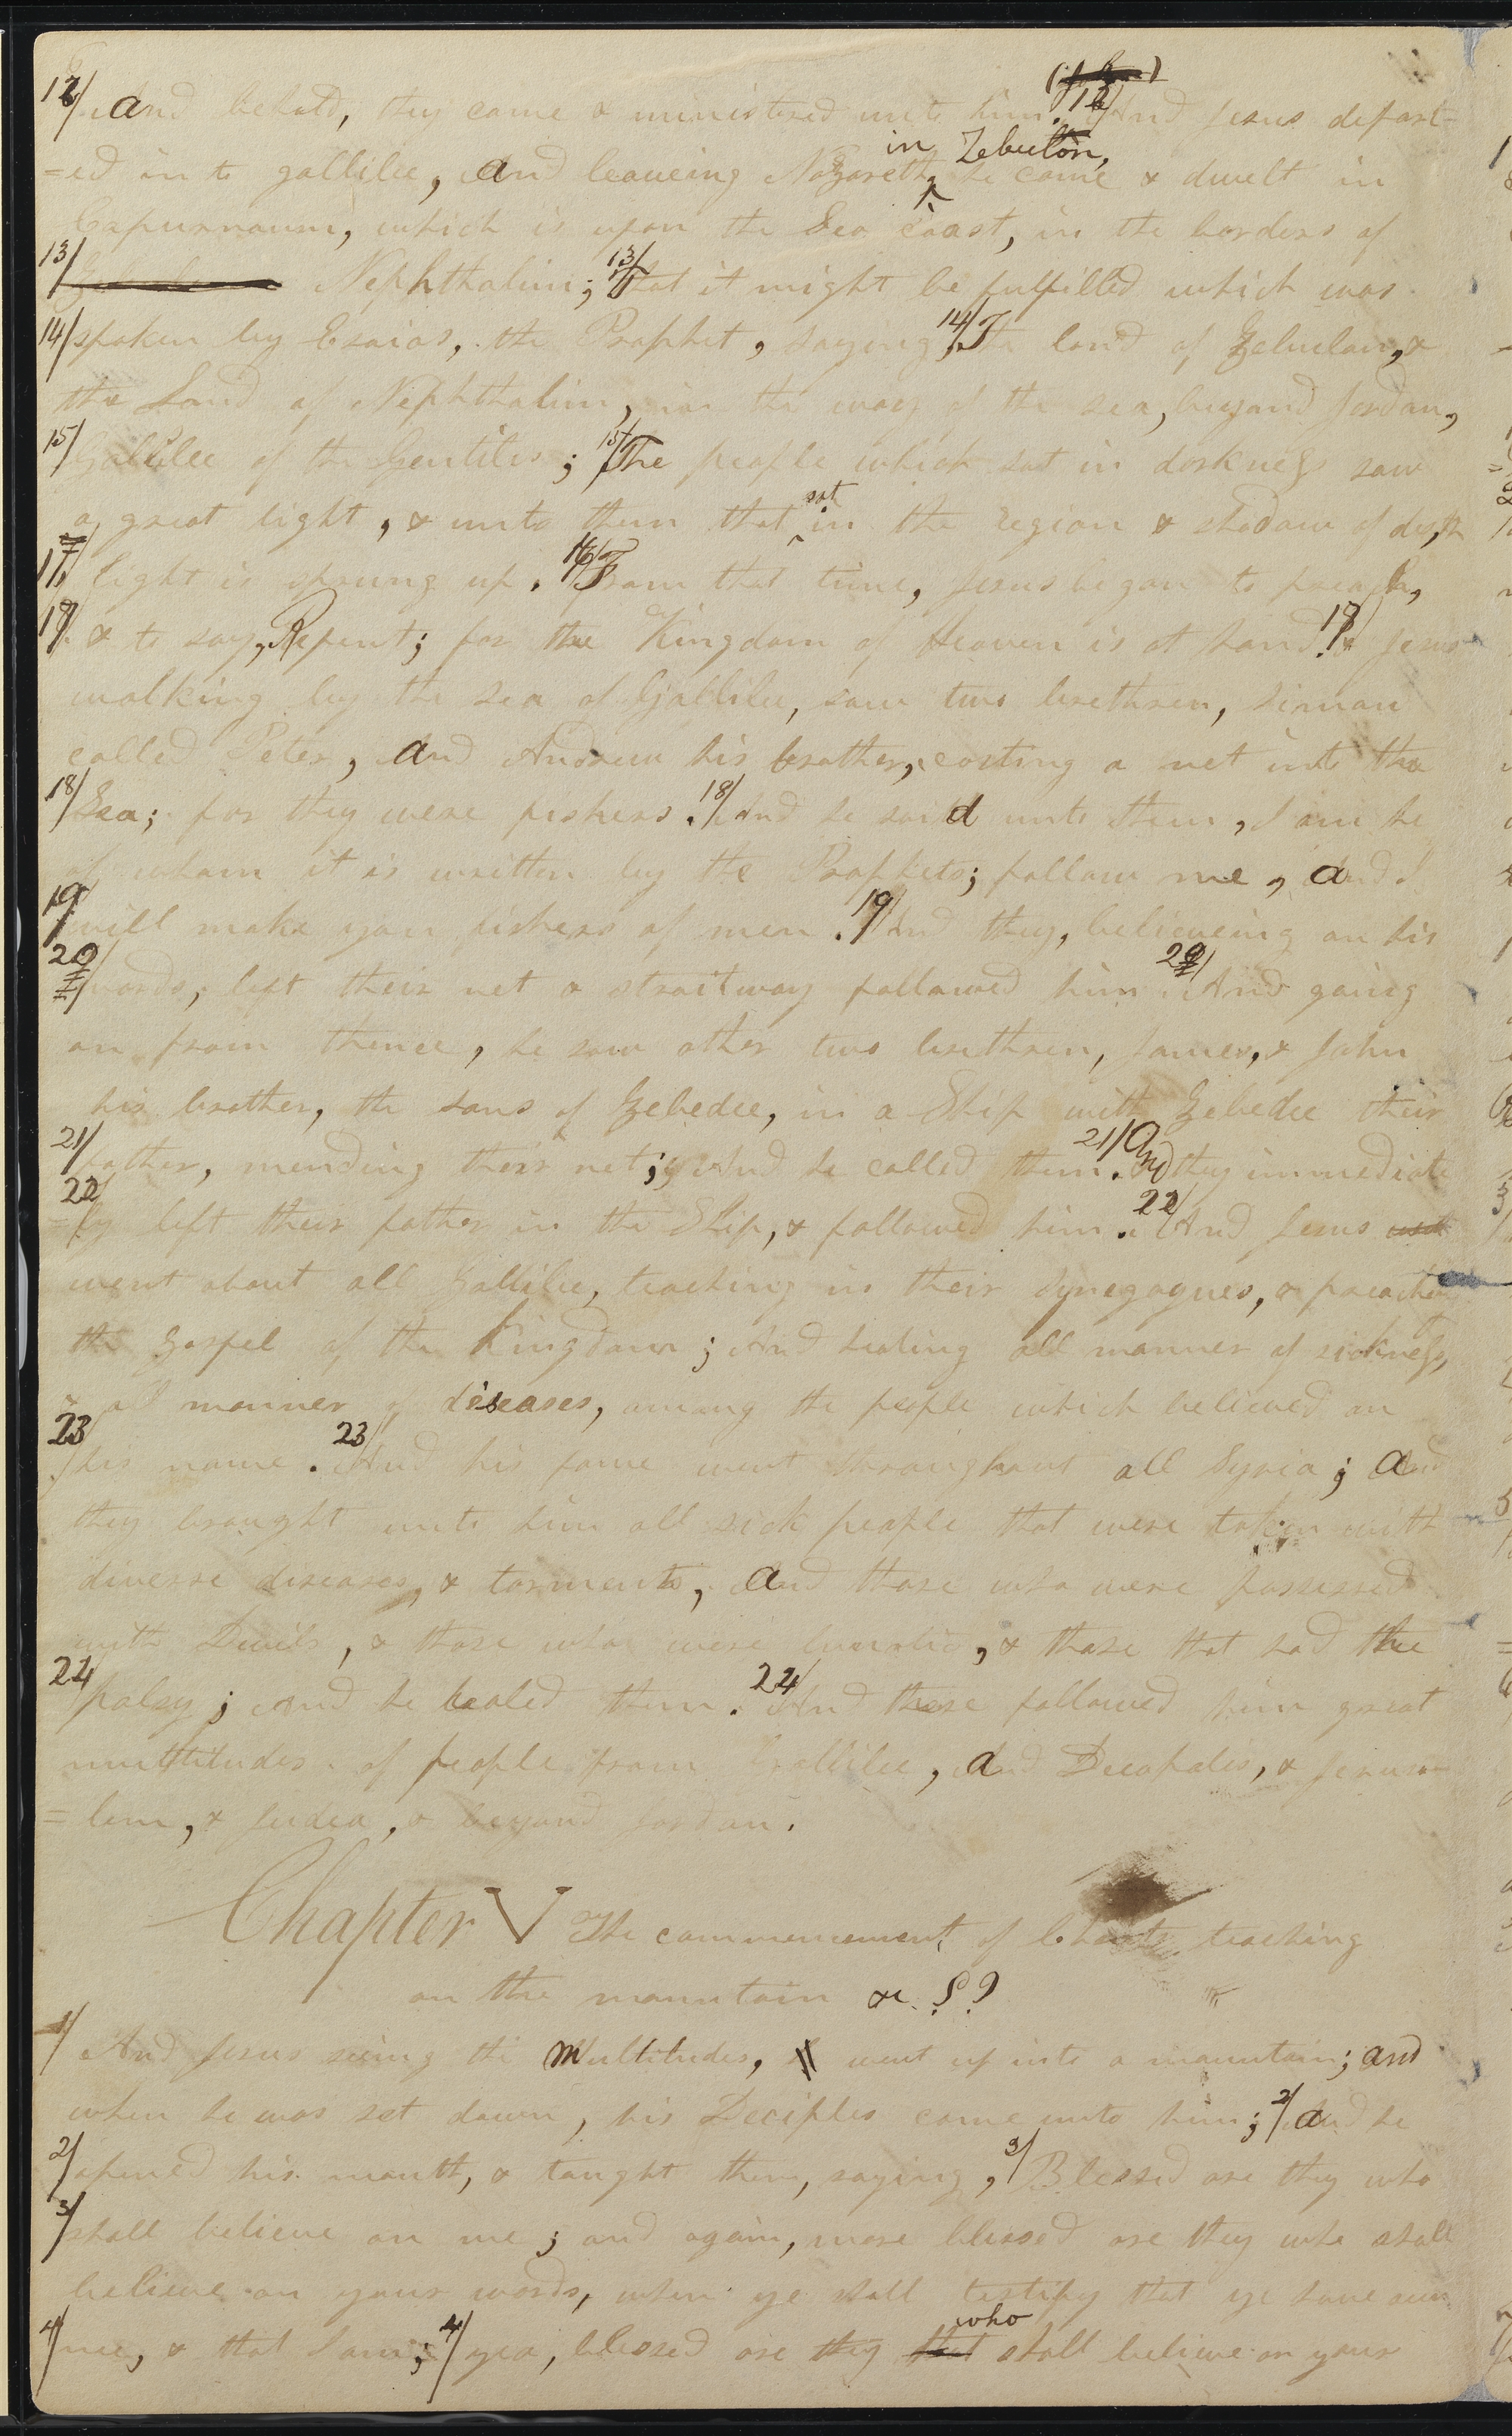 12/ and behold, they came & ministered unto him. 12/ And Jesus depart-
=ed in to gallilee, and leaveing Nazareth, in Zebulon, he came & dwelt in
Capurnaum, which is upon the Sea coast, in the borders of
13/ Nephthalim; 13/ That it might be fulfilled which was
14/ spoken by Esaias, the Prophet, saying, 14/ The land of Zebulan, &
the Land of Nephthalim, in the way of the sea, beyand Jordan,
15/ Gallilee of the Gentiles; 15/ The people which sat in darkness saw
a great light, & unto them that sat in the region & shadow of death
17/ light is sprung up. 16/ From that time, Jesus began to preach,
& to say, Repent; for the Kingdom of Heaven is at hand. Jesus
walking by the sea of Gallilee, saw two brethren, Simon
called Peter, and Andrew his brother, casting a net into the
18/ Sea; for they were fishers. 18/ And he said unto them, I am he
of whom it is written by the Prophets; follow me, and I
19/ will make you fishers of men. 19/ And they, believeing on his
20/ words, left their net & straitway followed him. 20/ And going
on from thence, he saw other two brethren, James, & John
his brother, the sons of Zebedee, in a Ship with Zebedee their
21/ father, mending their net; And he called them. 21/ And they immediate
22/ =ly left their father in the Ship, & followed him. 22/ And Jesus
went about all Gallilee, teaching in their Synegogues, & preaching
the Gospel of the Kingdom; And healing all manner of sickness,
& all manner of diseases, among the people which believed on
23/ his name. 23/ And his fame went throughout all Syria; and
they brought unto him all sick people that were taken with
diverse diseases, & torments, and those who were possessed
with Devils, & those who were lunatic, & those that had the
24/ palsy; And he healed them. 24/ And there followed him great
multitudes of people from Gallilee, and Decapolis, & Jerusa-
=lem, & Judea, & beyond Jordan.
Chapter V The commencement of Christs teaching
on the mountain &c. ??
1/ And Jesus seeing the Multitudes, went up into a mountain; and
when he was set down, his Deciples came unto him; 2/ and he
2/ opened his mouth, & taught them, saying, 3/ Blessed are they who
3/ shall believe on me; and again, more blessed are they who shall
believe on your words, when ye shall testify that ye have seen
4/ me, & that I am; 4/ yea, blessed are they that who shall believe on your